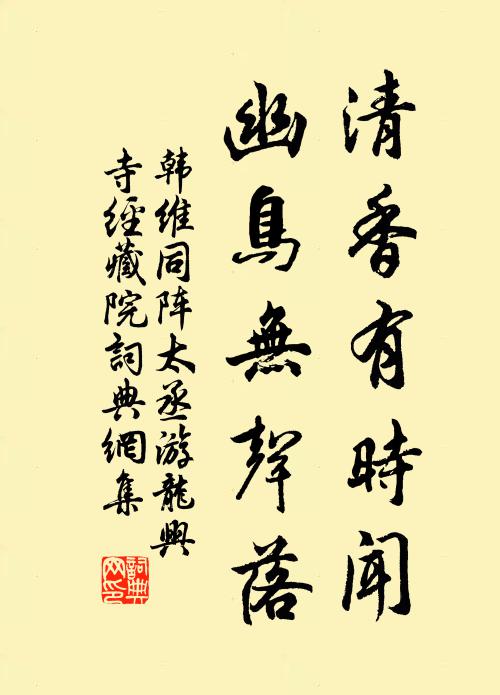 清香有時聞
幽鳥無聲落
韩維同阵太丞游龍興
寺經藏院詞典網集
詞典網印